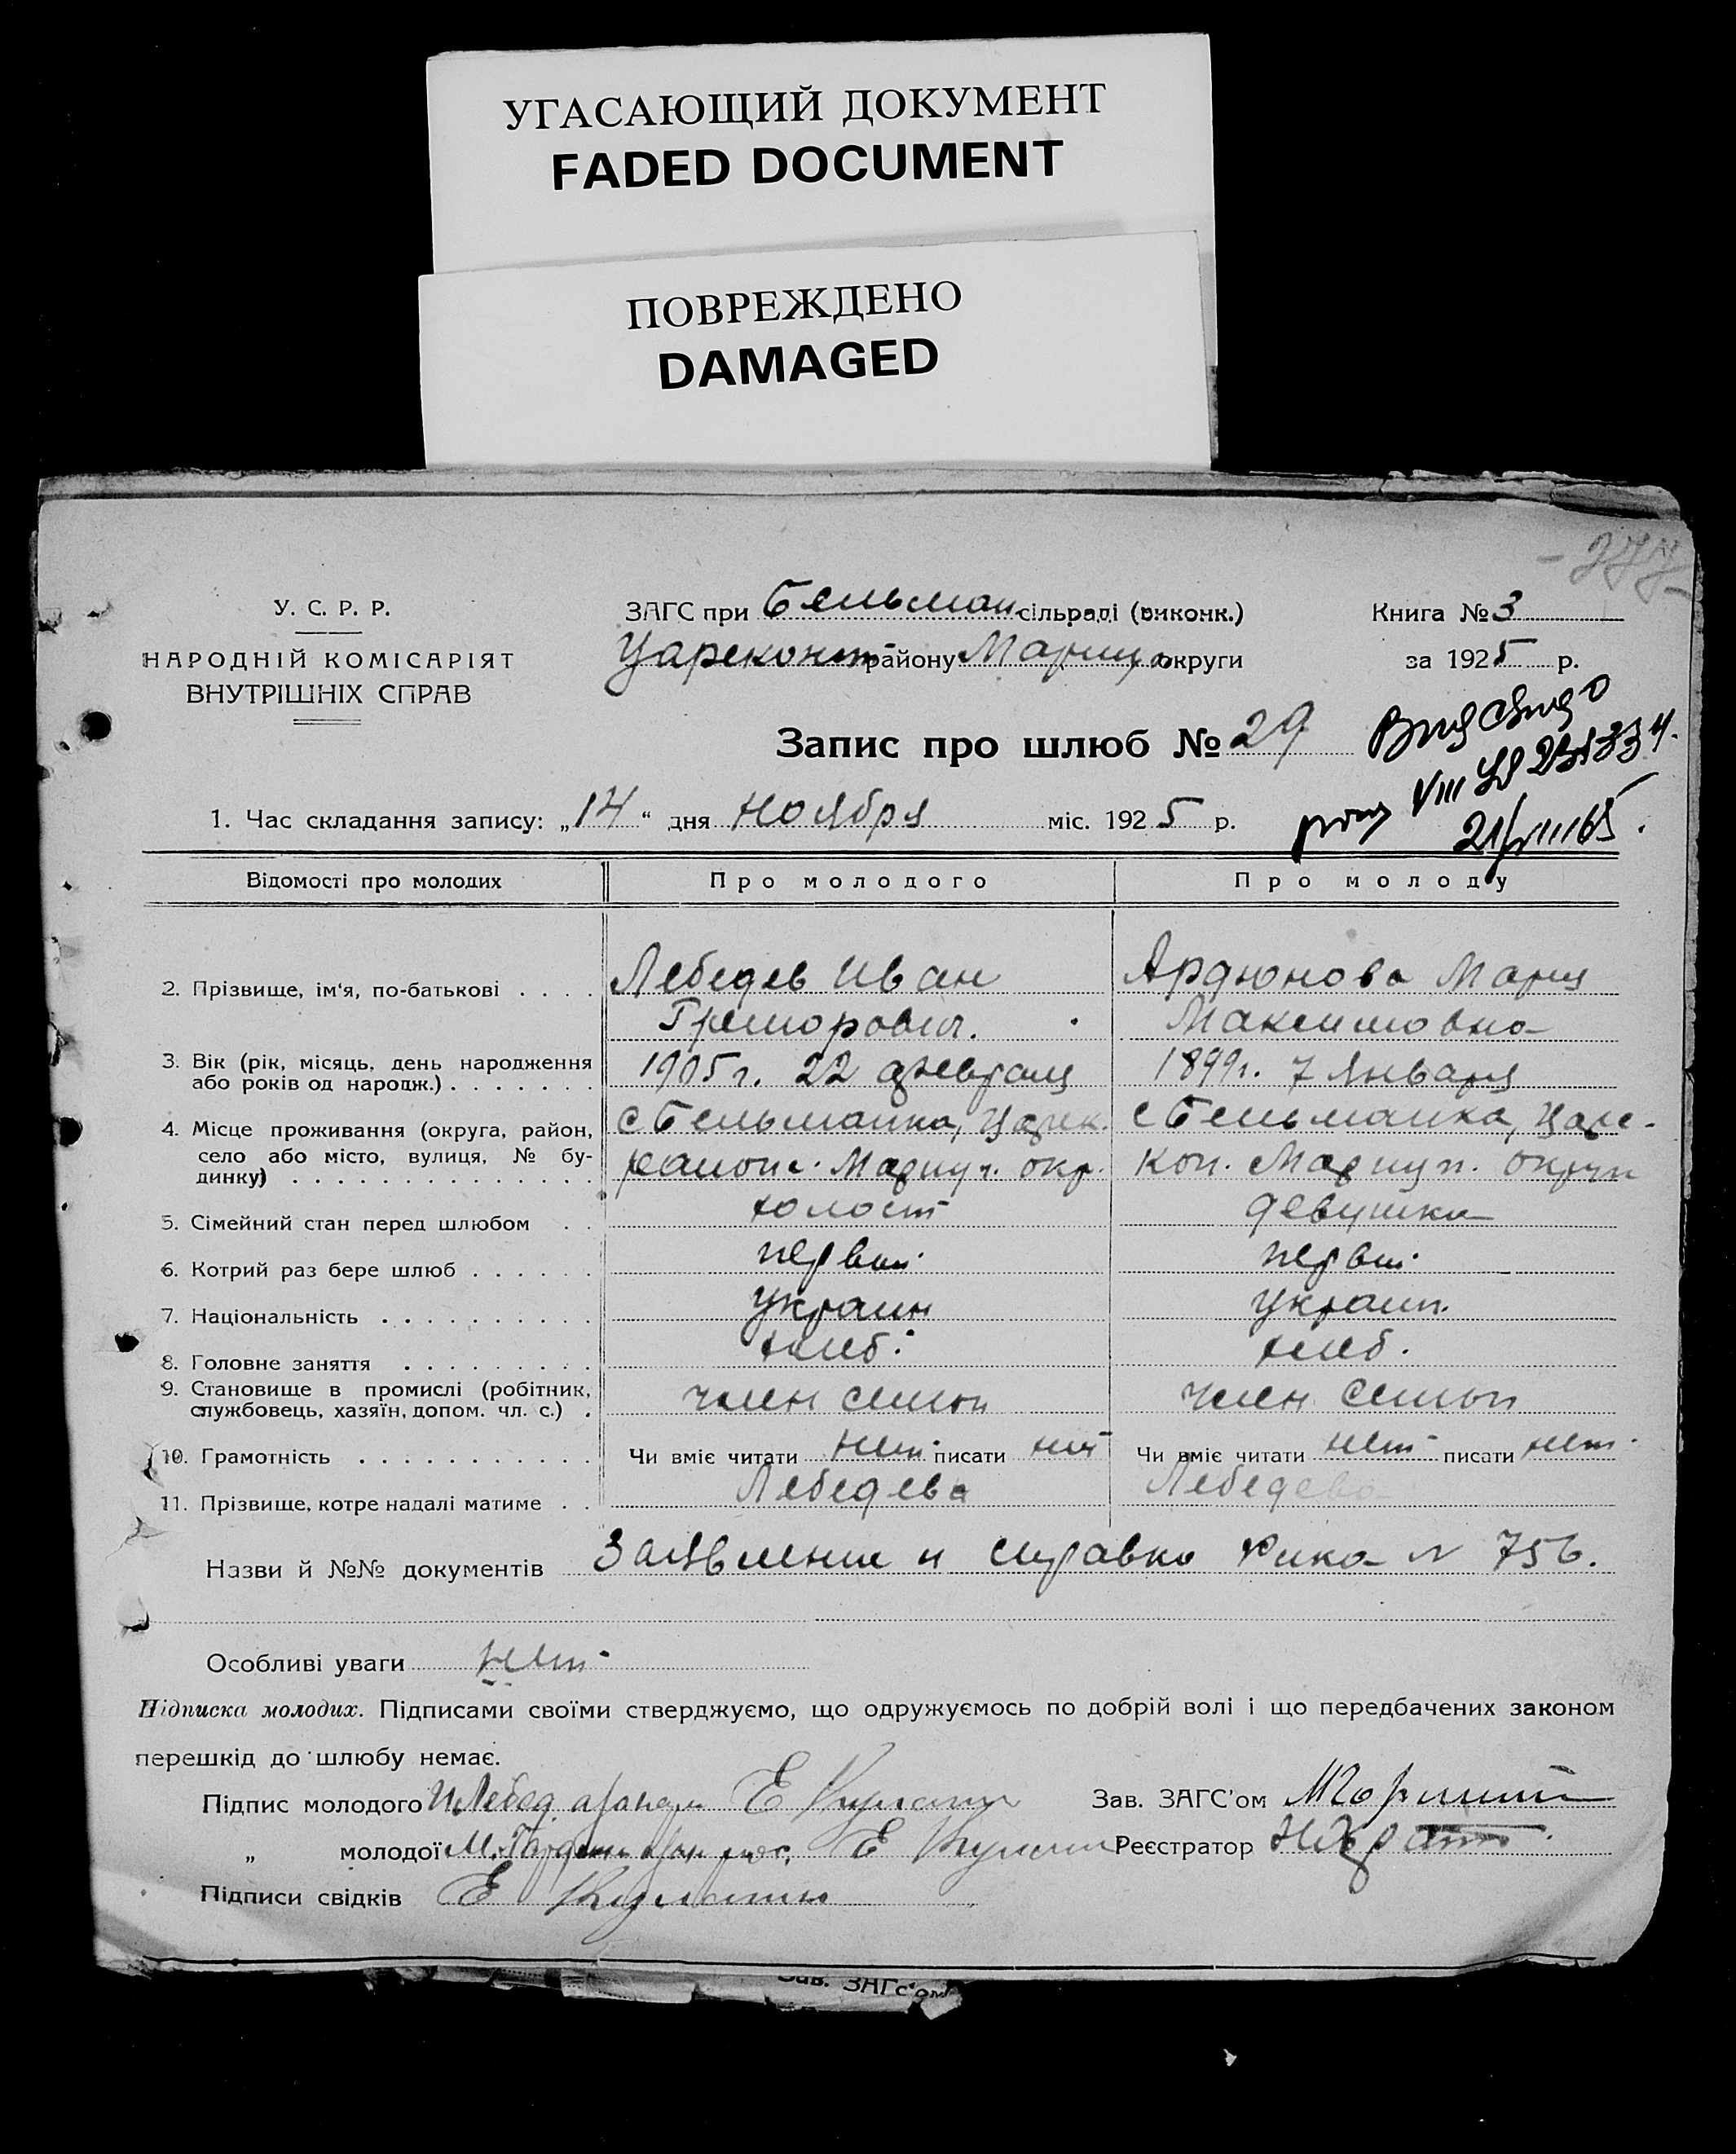 УГАСАЮЩИЙ ДОКУМЕНТ
FADED DOCUMENT
ПОВРЕЖДЕНО
DAMAGED
У. С. Р. Р.
НАРОДНІЙ КОМІСАРІЯТ
ВНУТРІШНІХ СПРАВ
ЗАГС при Бельман сільраді (виконк.)
Цареконст району Мариуп округи
Книга № 3
за 1925 р.
Запис про шлюб № 29
VIII
1. Час складання запису: „14“ дня Ноября міс. 1925 р.
Відомості про молодих
Про молодого
Про молоду
2. Прізвище, ім'я, по-батькові . . . .
Лебедев Иван
Григорович.
Ардюнова Мария
Максимовна
3. Вік (рік, місяць, день народження
або років од народж.) . . . . . . .
1905 г. 22 февраля
1899 г. 7 Января
4. Місце проживання (округа, район,
село або місто, вулиця, № бу-
динку) . . . . . . . . . . . . . .
с Бельманка, Царек.
район. Мариуп. окр.
с Бельманка, Царе-
кон. Мариуп. округи
5. Сімейний стан перед шлюбом . .
холост
девушка
6. Котрий раз бере шлюб . . . . . .
первый
первый
7. Національність . . . . . . . . . .
украин
украин.
8. Головне заняття . . . . . . . . .
хлеб.
хлеб.
9. Становище в промислі (робітник,
службовець, хазяїн, допом. чл. с.) .
член семьи
член семьи
10. Грамотність . . . . . . . . . . .
Чи вміє читати нет писати нет
Чи вміє читати нет писати нет
11. Прізвище, котре надалі матиме . .
Лебедева
Лебедева
Назви й №№ документів Заявление и справка Рика N 756.
Особливі уваги нет
Підписка молодих. Підписами своїми стверджуємо, що одружуємось по добрій волі і що передбачених законом
перешкід до шлюбу немає.
Підпис молодого И Лебед Е
Зав. ЗАГС'ом
„ молодої М. Е
Реєстратор
Підписи свідків Е
Зав. ЗАГС'ом